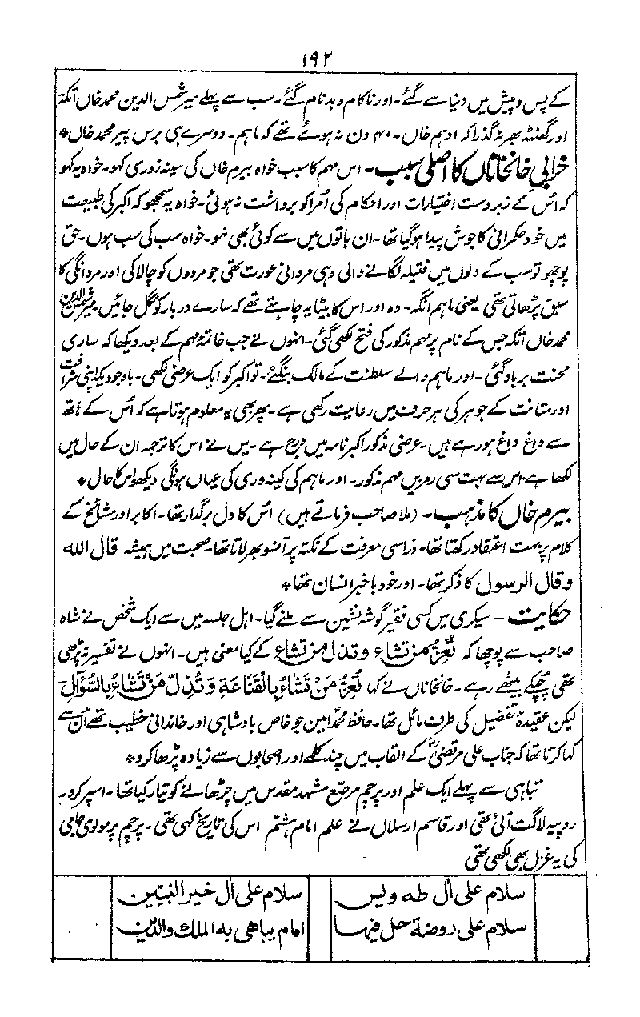 ۱۹۲
کے پس و پیش میں دنیا سے گئے۔ اور ناکام و بدنام گئے۔ سب سے پہلے میر شمس الدین محمد خاں اتکہ
اور گھنٹہ بھر نہ گذرا کہ ادہم خاں۔ ۴۰ دن نہ ہوئے تھے کہ ماہم۔ دوسرے ہی برس پیر محمد خاں *
خرابی خانخاناں کا اصلی سبب۔ اس مہم کا سبب خواہ بیرم خاں کی سینہ زوری کہو۔ خواہ یہ کہو
کہ اُس کے زبردست اختیارات اور احکام کی اُمرا کو برداشت نہ ہوئی۔ خواہ یہ سمجھو کہ اکبر کی طبیعت
میں خود حکمرانی کا جوش پیدا ہو گیا تھا۔ ان باتوں میں سے کوئی بھی نہو۔ خواہ سب کی سب ہوں۔ حق
پوچھو تو سب کے دلوں میں فتیلہ لگانے والی وہی مردانی عورت تھی جو مردوں کو چالاکی اور مردانگی کا
سبق پڑھاتی تھی یعنی ماہم اتکہ۔ وہ اور اس کا بیٹا یہ چاہتے تھے کہ سارے دربار کو نگل جائیں میر شمس الدین
محمد خاں اتکہ جس کے نام پر مہم مذکور کی فتح لکھی گئی۔ انہوں نے جب خاتمہ مہم کے بعد دیکھا کہ ساری
محنت برباد گئی۔ اور ماہم والے سلطنت کے مالک بنگئے۔ تو اکبر کو ایک عرضی لکھی۔ باوجودیکہ اپنی شرافت
اور متانت کے جوہر کی ہر حرف میں رعایت رکھی ہے۔ پھر بھی معلوم ہوتا ہے کہ اُس کے ہاتھ
سے داغ داغ ہو رہے ہیں۔ عرضی مذکور اکبر نامہ میں درج ہے۔ میں نے اس کا ترجمہ ان کے حال میں
لکھا ہے اس سے بہت سی رمزیں مہم مذکور۔ اور ماہم کی کینہ وری کی عیاں ہونگی دیکھو اس کا حال *
بیرم خاں کا مذہب۔ (ملا صاحب فرماتے ہیں) اُس کا دل پرگداز تھا۔ اکابر اور مشائخ کے
کلام پر بہت اعتقاد رکھتا تھا۔ ذرا سی معرفت کے نکتہ پر آنسو بھر لاتا تھا۔ صحبت میں ہمیشہ قال اللہ
و قال الرسول کا ذکر تھا۔ اور خود باخبر انسان تھا *
حکایت۔ سیکری میں کسی فقیر گوشہ نشین سے ملنے گیا۔ اہل جلسہ میں سے ایک شخص نے شاہ
صاحب سے پوچھا کہ تُعِزُّ مَن تشاء و تذل من تشاء کے کیا معنی ہیں۔ انہوں نے تفسیر نہ پڑھی
تھی چپکے بیٹھے رہے۔ خانخاناں نے کہا تُعِزُّ مَن تَشَاءُ بِالقَنَاعَةِ وَتُذِلُّ مَنْ تَشَاءُ بِالسُّوَالِ
لیکن عقیدہ تفضیل کی طرف مائل تھا۔ حافظ محمد امین جو خاص بادشاہی اور خاندانی خطیب تھے اُن سے
کہا کرتا تھا کہ جناب علی مرتضیٰ کے القاب میں چند کلمے اور اصحابوں سے زیادہ پڑھا کرو *
تباہی سے پہلے ایک علم اور پرچم مرصع مشہد مقدس میں چڑھانے کو تیار کیا تھا۔ اسپر کروڑ
روپیہ لاگت آئی تھی اور قاسم ارسلاں نے علم امام ہشتم اس کی تاریخ کہی تھی۔ پرچم پر مولوی جامی
کی یہ غزل بھی لکھی تھی
سلام علی آل طہ و یس سلام علی آل خیر النبیین
سلام علی روضۃ حل فیھا امام یباھی بہ الملک والدین